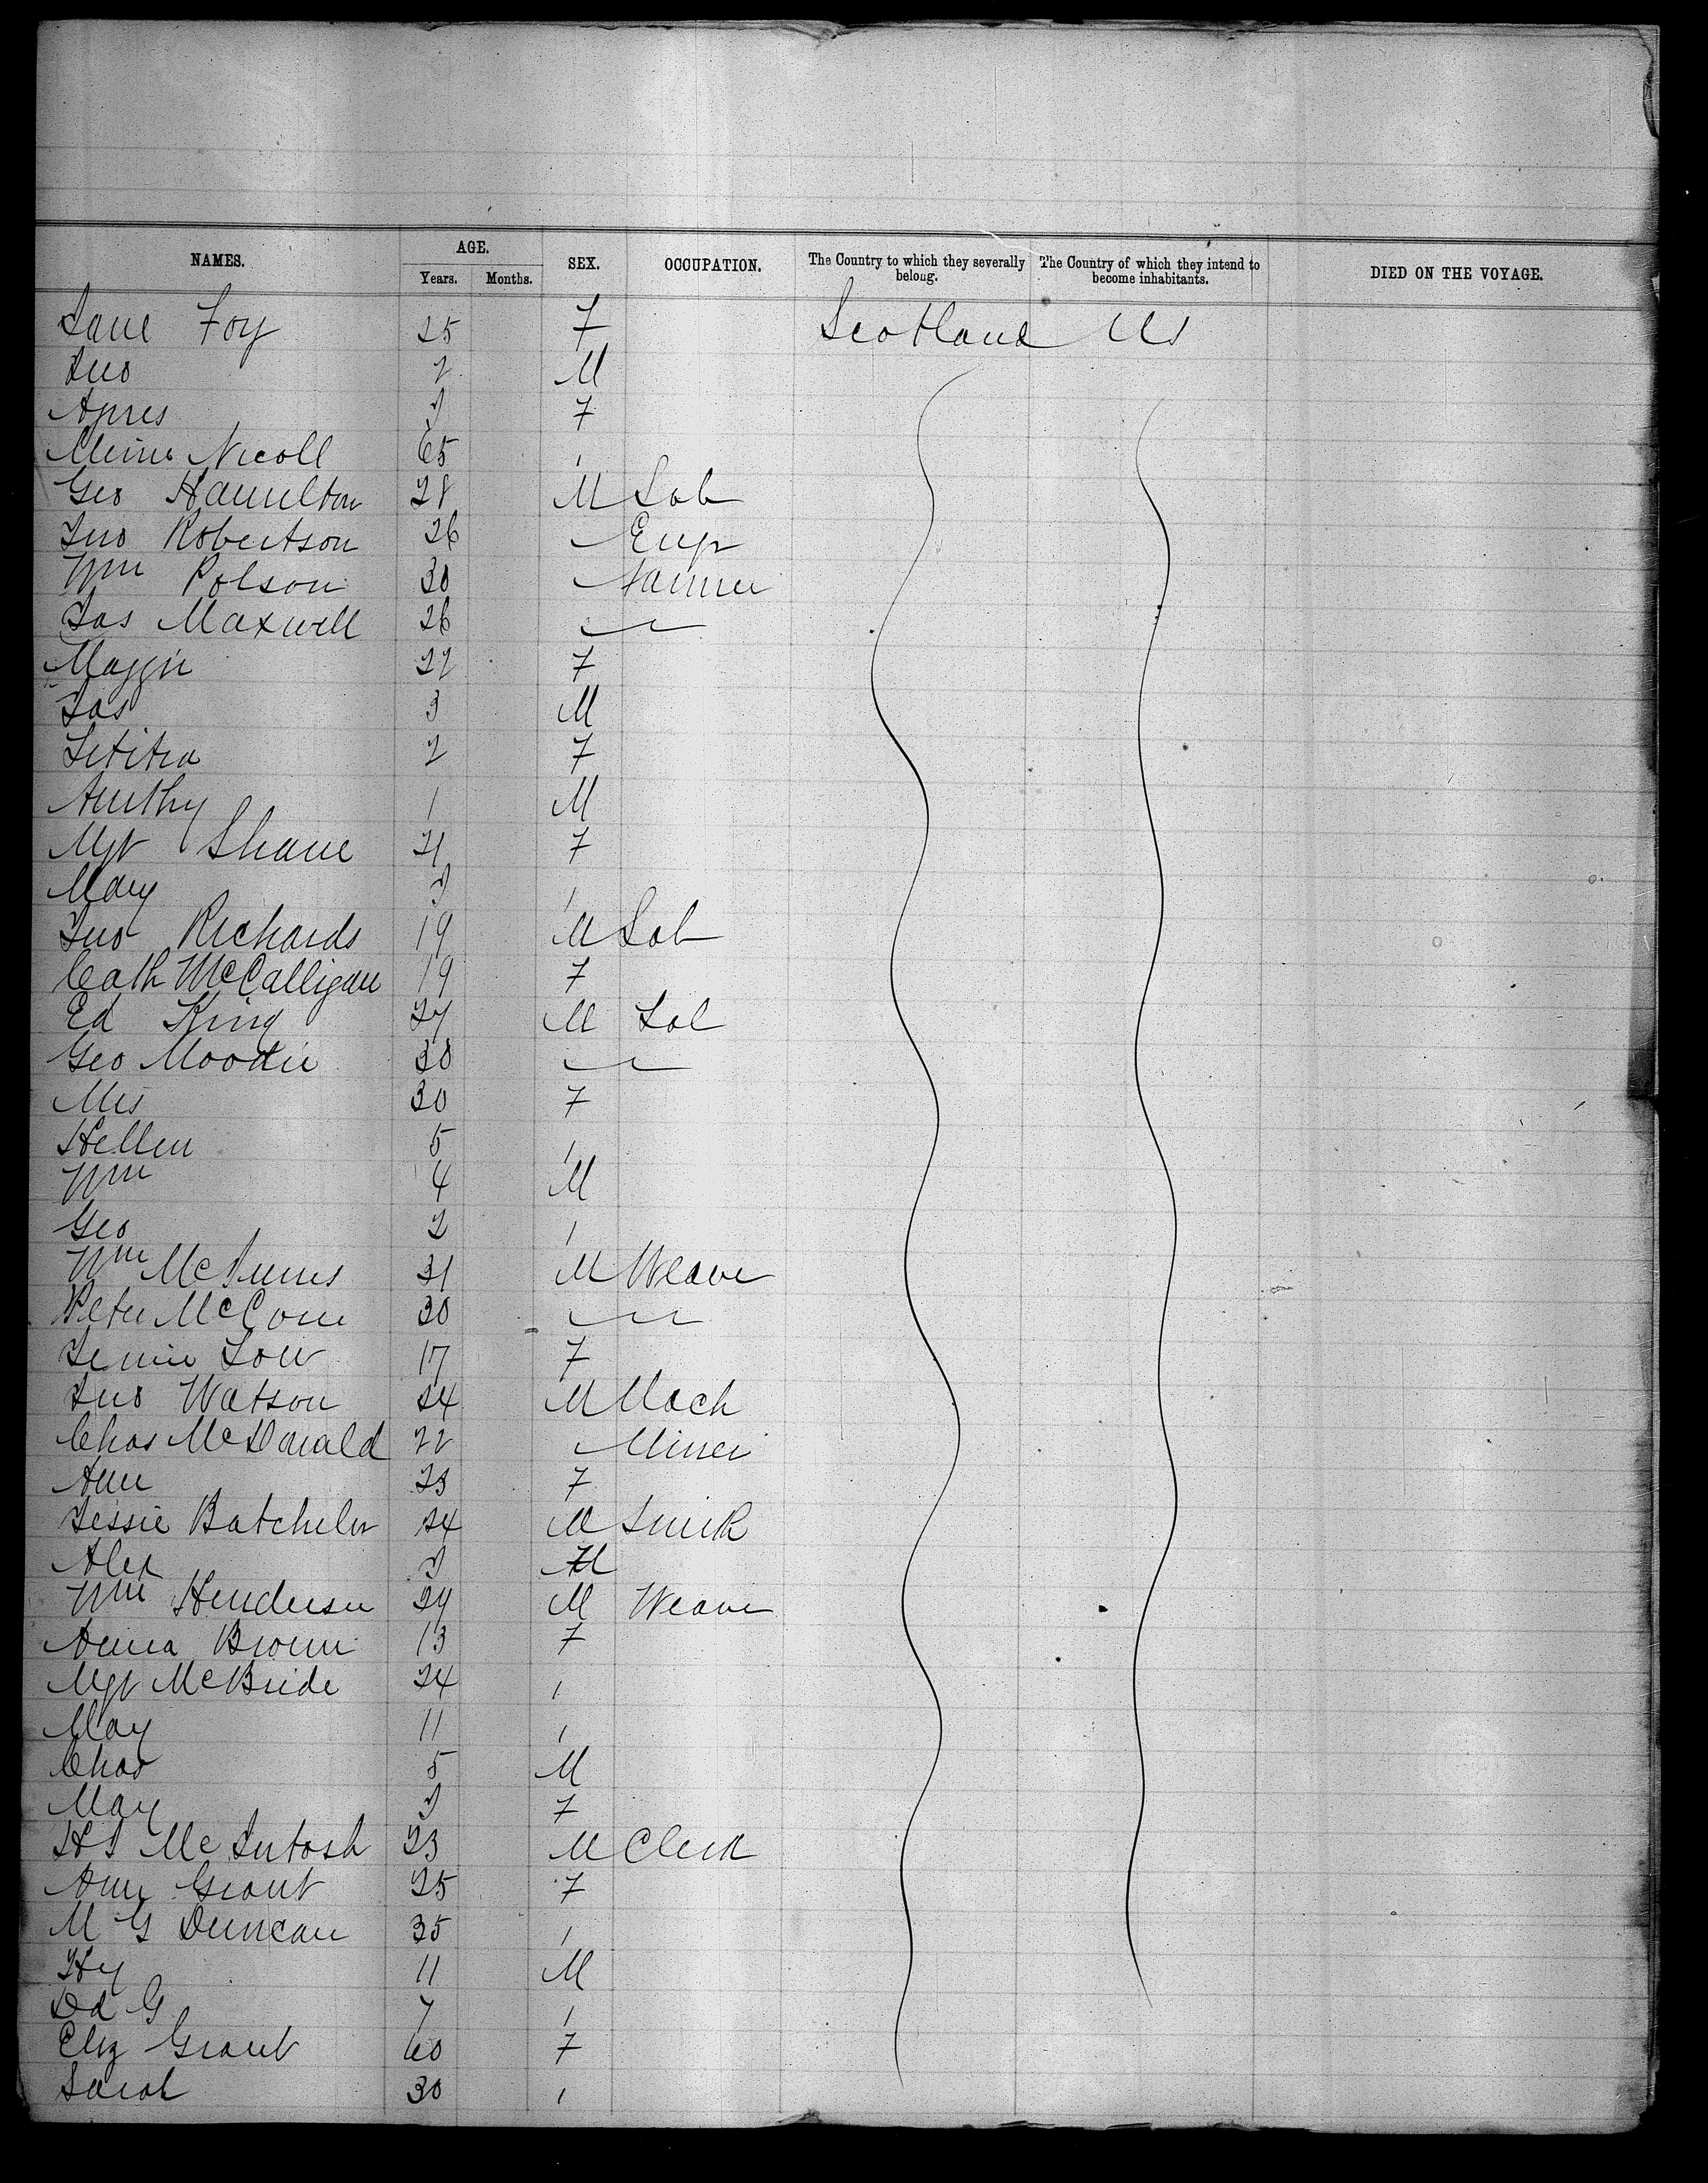 NAMES. AGE. SEX. OCCUPATION. The Country to which they severally belong. The Country of which they intend to become inhabitants. DIED ON THE VOYAGE.
Years. Months.
Jane Foy 25 F Scotland US
Jno 2 M
Agnes F
Nicoll 65 "
Geo Hamilton 28 M Lab
Jno Robertson 26 Engr
Wm Polson 30 Farmer
Jas Maxwell 26
Maggie 22 F
Jas 3 M
Letitia 2 F
1 M
Mgt Shane 21 F
Mary "
Jno Richards 19 M Lab
Cath McCalligan 19 F
Ed King 27 M Lab
Geo Moodie 30
Mrs 30 F
Hellen 5 "
Wm 4 M
Geo 2 "
Wm McInnes 21 M Weaver
Peter 30
Jennie Low 17 F
Jno Watson 24 M Mach
Chas McDonald 22 Miner
Ann 23 F
Jessie Batchelor 24 M Smith
Alex M
Wm Henderson 24 M Weaver
Anna Brown 13 F
Mgt McBride 24 "
May 11 "
Chas 5 M
May F
McIntosh 23 M Clerk
Ann Grant 25 F
M G Duncan 35 "
Hy 11 M
Ed G 7 "
Eliz Grant 60 F
Sarah 30 "